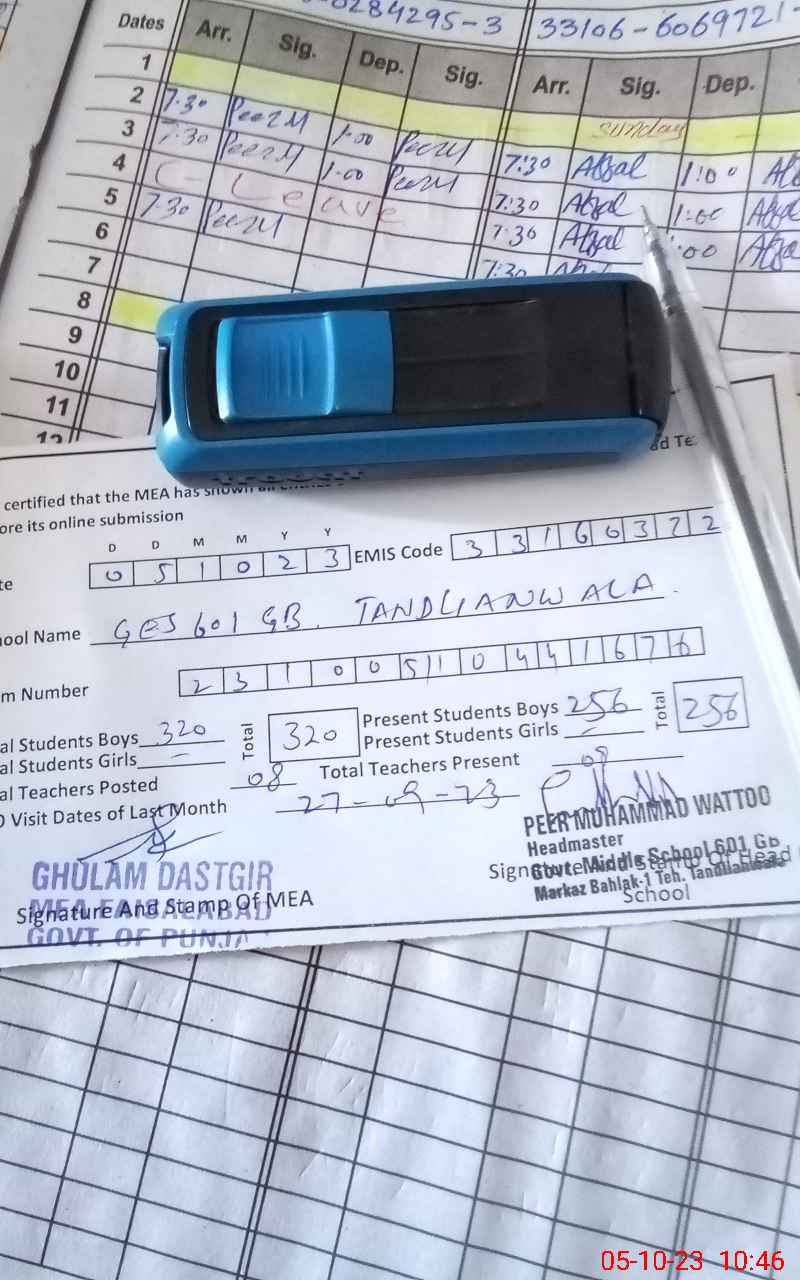 0284295-3 33106-6069721-
Dates Arr. Sig. Dep. Sig. Arr. Sig. Dep.
1 Sunday
2 7.30 Peer M 1.00 Peer M 7:30 Afzal 1:00
3 7.30 Peer M 1.00 Peer M 7:30 Afzal 1:00 Afzal
4 C- Leave 7:30 Afzal 1:00 Afzal
5 7.30 Peer M 7:30
6
7
8
9
10
11
12
certified that the MEA has shown all
ore its online submission
D D M M Y Y
te 0 5 1 0 2 3 EMIS Code 3 3 1 6 0 3 7 2
ool Name GES 601 GB. TANDLIANWALA.
m Number
al Students Boys 320 Total 320 Present Students Boys 256 Total 256
al Students Girls - Present Students Girls -
al Teachers Posted 08 Total Teachers Present 08
Visit Dates of Last Month 27-09-23
GHULAM DASTGIR
MEA FAISALABAD
GOVT. OF PUNJA
Signature And Stamp Of MEA
PEER MUHAMMAD WATTOO
Headmaster
Govt. Middle School 601 GB
Markaz Bahlak-1 Teh. Tandlianwala
Signature And Stamp Of Head
School
05-10-23 10:46